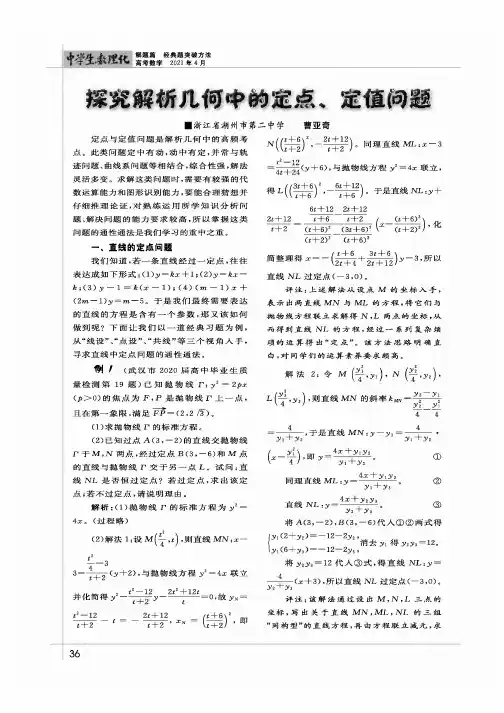 中学生数理化 解题篇 经典题突破方法
高考数学 2021年4月
探究解析几何中的定点、定值问题
■浙江省湖州市第二中学 曹亚奇
定点与定值问题是解析几何中的高频考
点。此类问题定中有动,动中有定,并常与轨
迹问题、曲线系问题等相结合,综合性强,解法
灵活多变。求解这类问题时,需要有较强的代
数运算能力和图形识别能力,要能合理猜想并
仔细推理论证,对熟练运用所学知识分析问
题、解决问题的能力要求较高,所以掌握这类
问题的通性通法是我们学习的重中之重。
一、直线的定点问题
我们知道,若一条直线经过一定点,往往
表达成如下形式:(1)y=kx+1;(2)y=kx-
k;(3)y-1=k(x-1);(4)(m-1)x+
(2m-1)y=m-5。于是我们最终需要表达
的直线的方程是含有一个参数,那又该如何
做到呢?下面让我们以一道经典习题为例,
从“线设”、“点设”、“共线”等三个视角入手,
寻求直线中定点问题的通性通法。
例1 (武汉市2020届高中毕业生质
量检测第19题)已知抛物线Γ:y²=2px
(p>0)的焦点为F,P是抛物线Γ上一点,
且在第一象限,满足FP=(2,2√3)。
(1)求抛物线Γ的标准方程。
(2)已知过点A(3,-2)的直线交抛物线
Γ于M,N两点,经过定点B(3,-6)和M点
的直线与抛物线Γ交于另一点L。试问:直
线NL是否恒过定点?若过定点,求出该定
点;若不过定点,请说明理由。
解析:(1)抛物线Γ的标准方程为y²=
4x。(过程略)
(2)解法1:设M(t²/4,t),则直线MN:x-
3=(t²/4-3)/(t+2)(y+2),与抛物线方程y²=4x联立
并化简得y²-(t²-12)/(t+2)y-(2t²+12t)/(t+2)=0,故yN=
(t²-12)/(t+2)-t=-(2t+12)/(t+2),xN=((t+6)/(t+2))²,即
N(((t+6)/(t+2))²,-(2t+12)/(t+2))。同理直线ML:x-3
=(t²-12)/(4t+24)(y+6),与抛物线方程y²=4x联立,
得L(((3t+6)/(t+6))²,-(6t+12)/(t+6))。于是直线NL:y+
(2t+12)/(t+2)=((6t+12)/(t+6)-(2t+12)/(t+2))/((t+6)²/(t+2)²-(3t+6)²/(t+6)²)(x-(t+6)²/(t+2)²),化
简整理得x=-((t+6)/(2t+4)+(3t+6)/(2t+12))y-3,所以
直线NL过定点(-3,0)。
评注:上述解法从设点M的坐标入手,
表示出两直线MN与ML的方程,将它们与
抛物线方程联立求解得N,L两点的坐标,从
而得到直线NL的方程,经过一系列复杂烦
琐的运算得出“定点”。该方法思路明确直
白,对同学们的运算素养要求颇高。
解法2:令M(y₁²/4,y₁),N(y₂²/4,y₂),
L(y₃²/4,y₃),则直线MN的斜率kMN=(y₁-y₂)/(y₁²/4-y₂²/4)
=4/(y₁+y₂),于是直线MN:y-y₁=4/(y₁+y₂)·
(x-y₁²/4),即y=(4x+y₁y₂)/(y₁+y₂)。 ①
同理直线ML:y=(4x+y₁y₃)/(y₁+y₃)。 ②
直线NL:y=(4x+y₂y₃)/(y₂+y₃)。 ③
将A(3,-2),B(3,-6)代入①②两式得
{y₁(2+y₂)=-12-2y₂,
y₁(6+y₃)=-12-2y₃, 消去y₁得y₂y₃=12。
将y₂y₃=12代入③式,得直线NL:y=
4/(y₂+y₃)(x+3),所以直线NL过定点(-3,0)。
评注:该解法通过设出M,N,L三点的
坐标,写出关于直线MN,ML,NL的三组
“同构型”的直线方程,再由方程联立减元,求
36